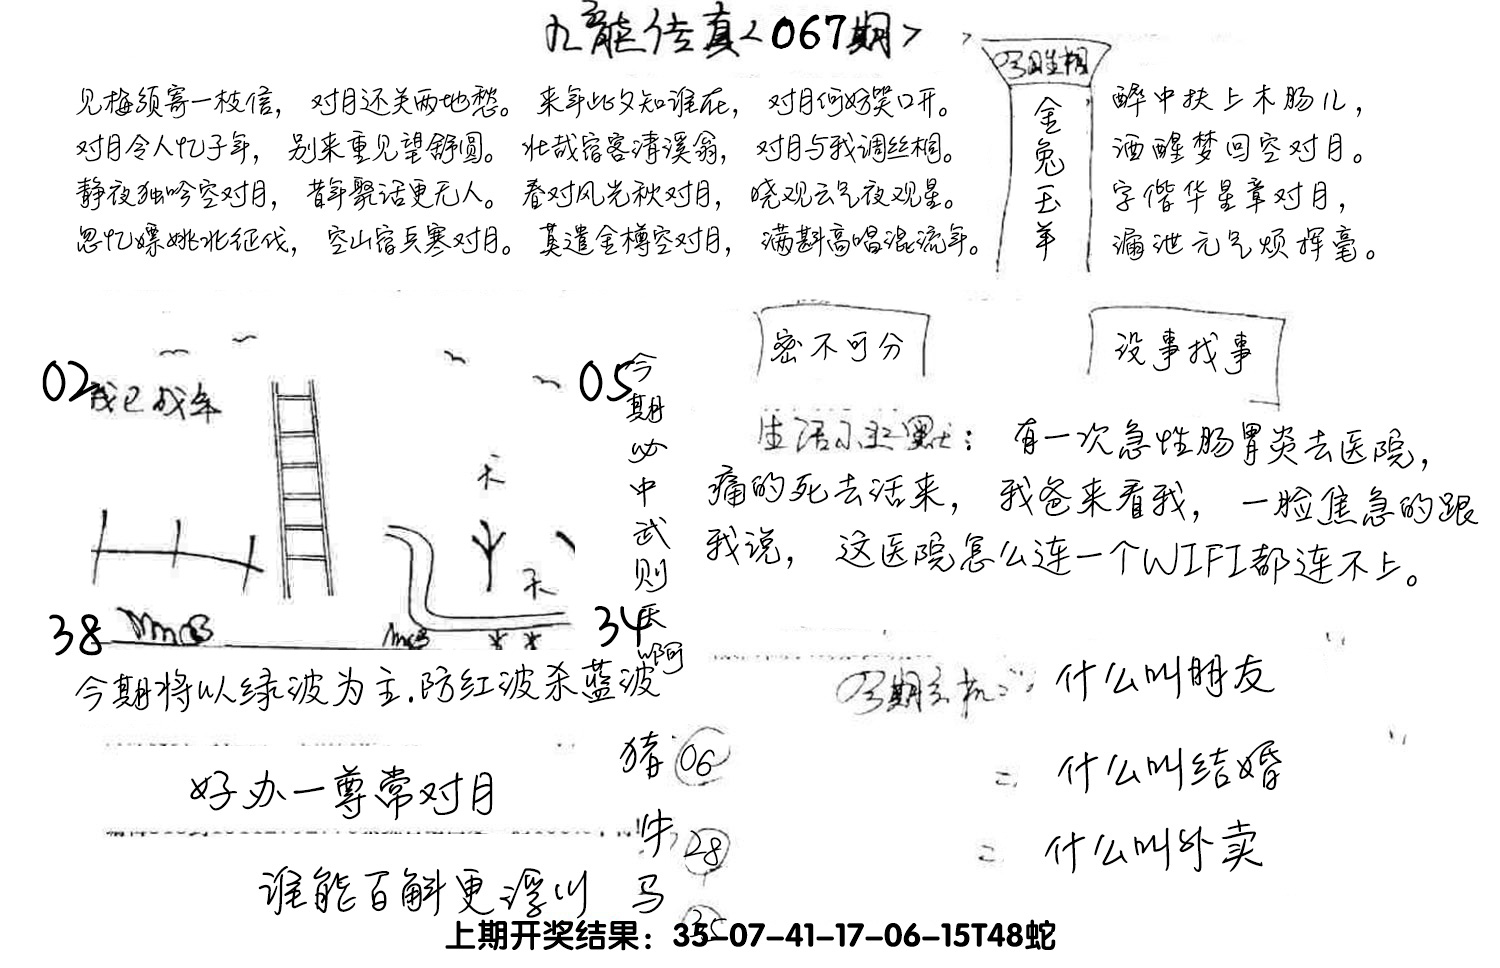 九龙传真<067期>
见梅须寄一枝信，对月还关两地愁。来年此夕知谁在，对月何妨笑口开。
对月令人忆子年，别来重见望舒圆。壮哉宿客清溪翁，对月与我调丝桐。
静夜独吟空对月，昔年聚话更无人。春对风光秋对月，晓观云气夜观星。
忽忆嫖姚北征伐，空山宿兵寒对月。莫遣金樽空对月，满斟高唱混流年。
金兔玉羊
醉中扶上木肠儿，
酒醒梦回空对月。
字偕华星章对月，
漏泄元气烦挥毫。
02
05
38
34
今期必中武则天啊
今期将以绿波为主.防红波杀蓝波
密不可分
没事找事
生活小幽默：有一次急性肠胃炎去医院，
痛的死去活来，我爸来看我，一脸焦急的跟
我说，这医院怎么连一个WIFI都连不上。
好办一尊常对月
谁能百斛更浮川
猪 06
牛 28
马 35
今期玄机：什么叫朋友
什么叫结婚
什么叫外卖
上期开奖结果：35-07-41-17-06-15T48蛇